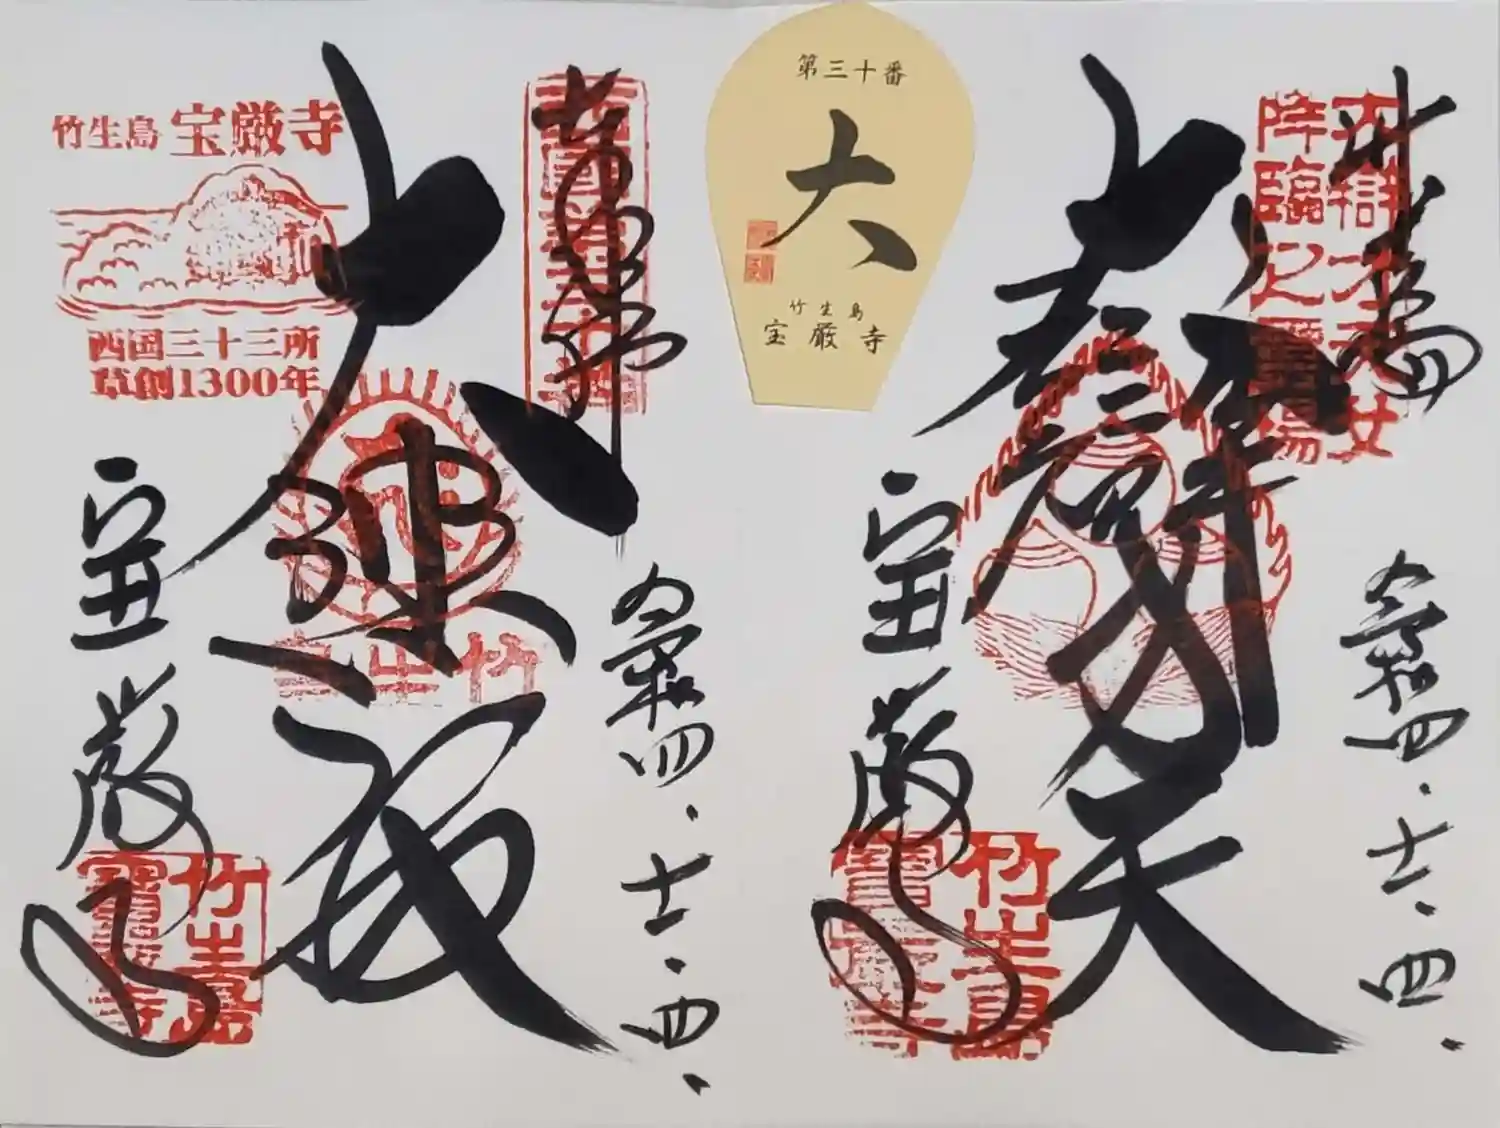 竹生島 宝厳寺
西国三十三所
草創1300年
奉拝
大悲殿
令和四.十一.四.
宝厳寺
竹生島
第三十番
大
竹生島
宝厳寺
竹生島
大弁才天女
降臨之霊場
大辯才天
令和四.十一.四.
宝厳寺
竹生島
寶厳寺